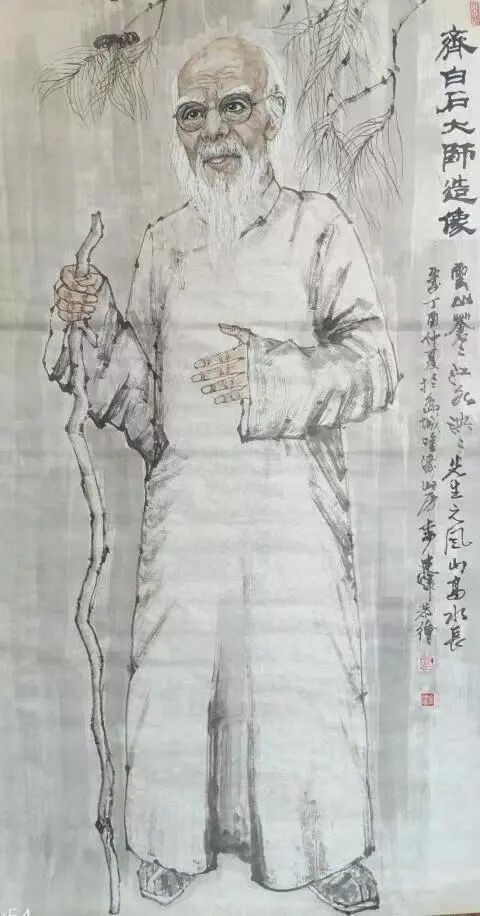 齊白石大師造像
雲山蒼々江水泱々先生之風山高水長
丁酉仲夏於島城山房步恭繪